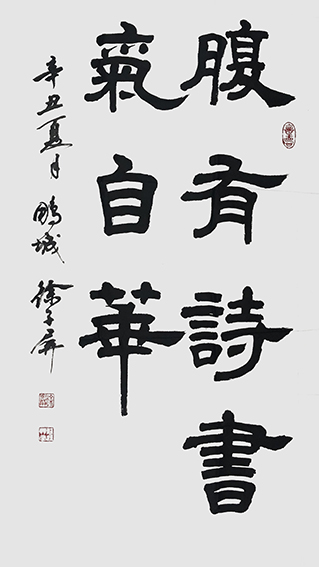 腹有詩書
氣自華
辛丑夏月 鵬城 徐子屏